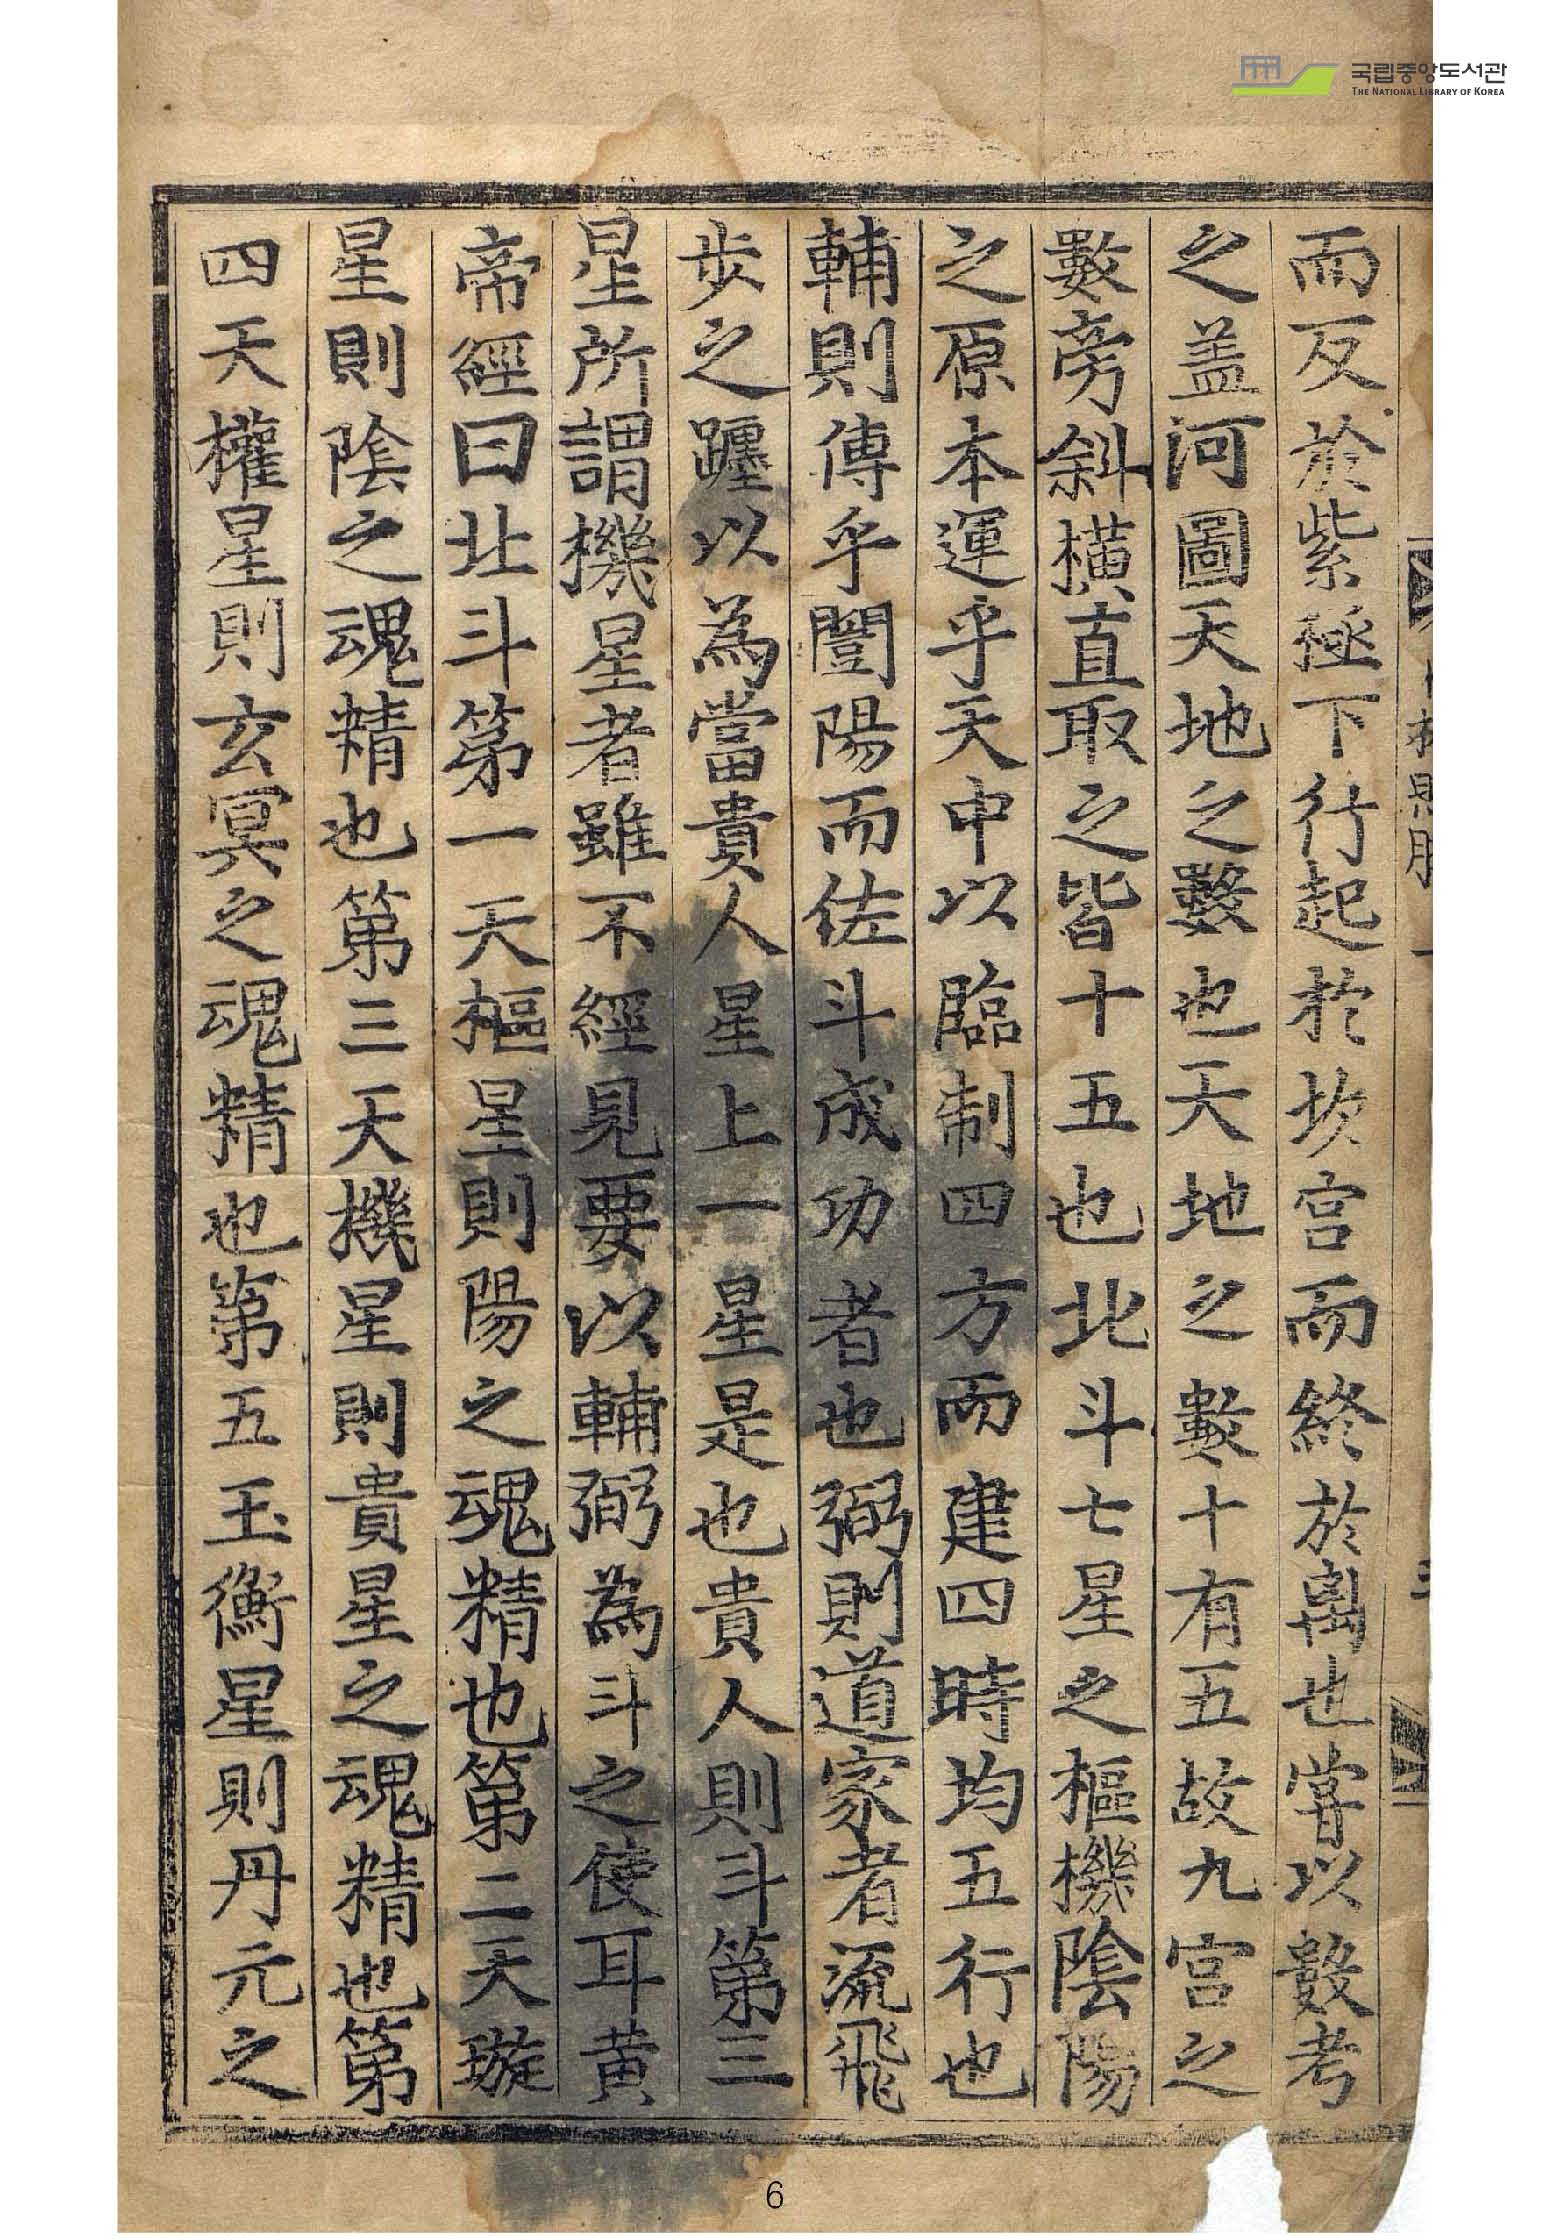 국립중앙도서관
THE NATIONAL LIBRARY OF KOREA
而反於紫極下行起於坎宮而終於离也嘗以數考
之盖河圖天地之數也天地之數十有五故九宮之
數旁斜橫直取之皆十五也北斗七星之樞機陰陽
之原本運乎天中以臨制四方而建四時均五行也
輔則傳乎闓陽而佐斗成功者也弼則道家者流飛
步之躔以為當貴人星上一星是也貴人則斗第三
星所謂機星者雖不經見要以輔弼為斗之使耳黄
帝經曰北斗第一天樞星則陽之魂精也第二天璇
星則陰之魂精也第三天機星則貴星之魂精也第
四天權星則玄冥之魂精也第五玉衡星則丹元之
6